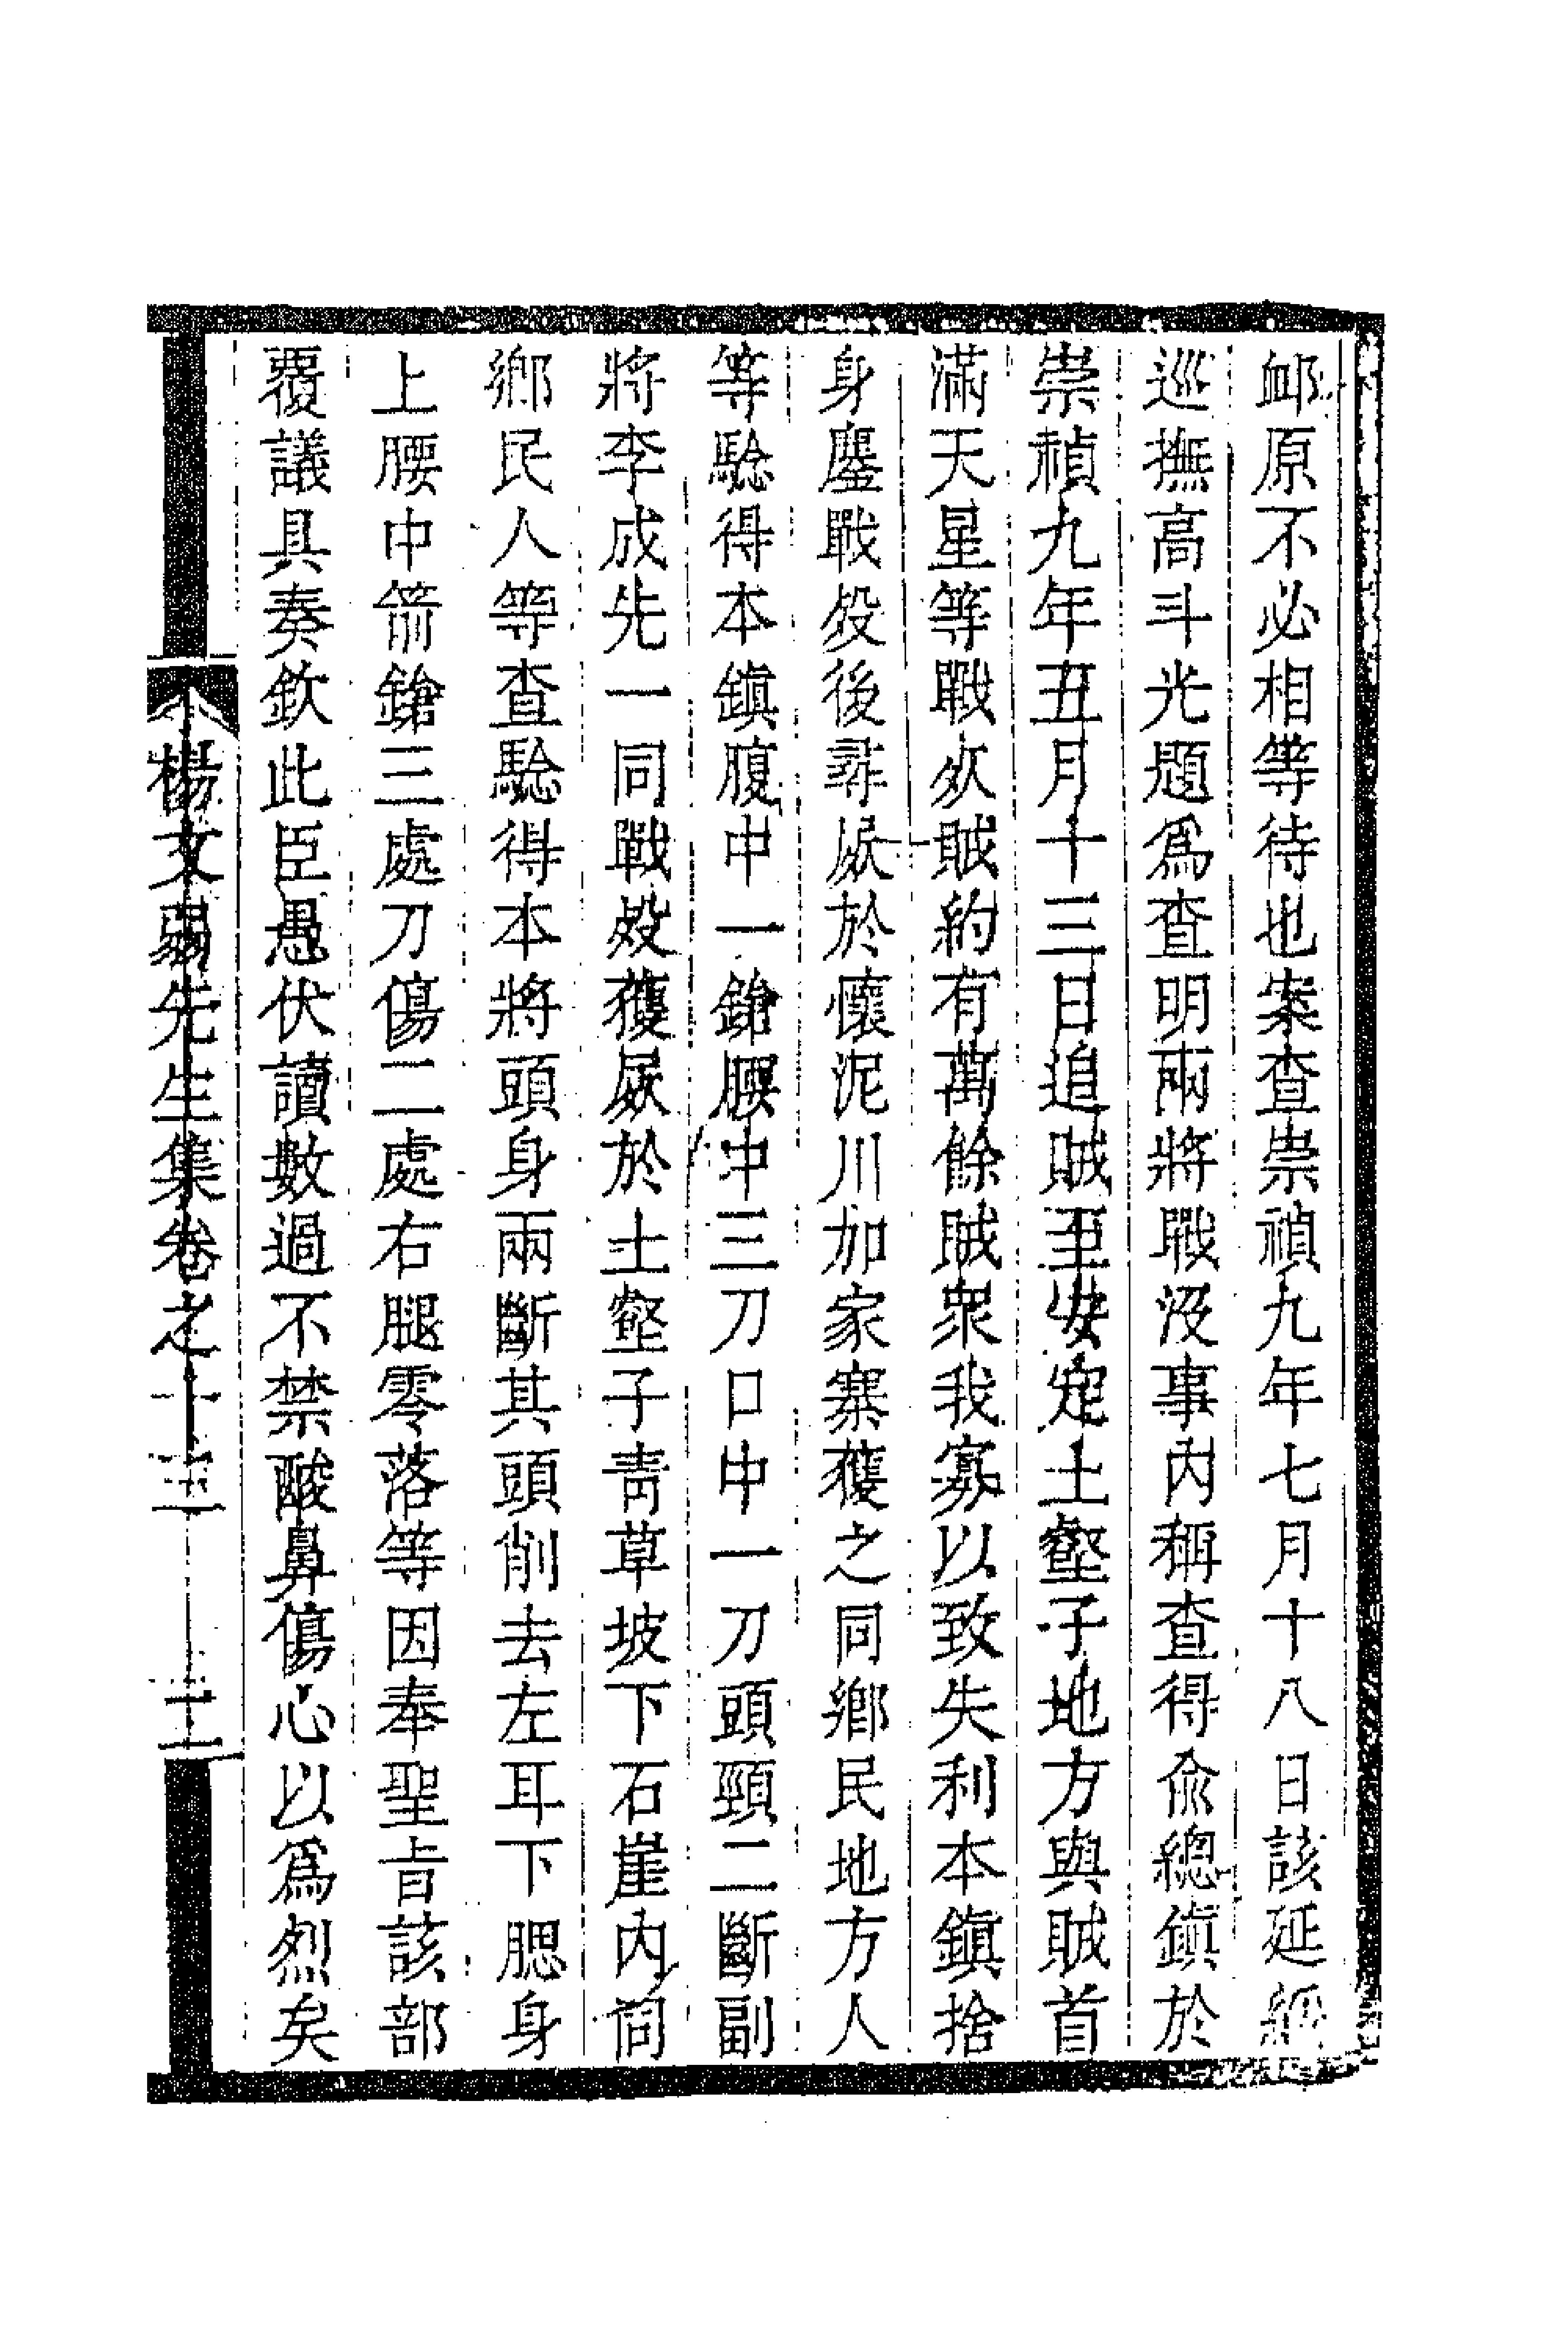 卹原不必相等待也案查崇禎九年七月十八日該延綏
巡撫高斗光題為查明兩將戰沒事內稱查得俞總鎮於
崇禎九年五月十三日追賊至安定土壑子地方與賊首
滿天星等戰𣦸賊約有萬餘賊眾我寡以致失利本鎮捨
身鏖戰歿後尋屍於懷泥川加家寨獲之同鄉民地方人
等騐得本鎮腹中一鎗腰中三刀口中一刀頭頸二斷副
將李成先一同戰歿獲屍於土壑子青草坡下石崖內同
鄉民人等查騐得本將頭身兩斷其頭削去左耳下腮身
上腰中箭鎗三處刀傷二處右腿零落等因奉聖旨該部
覆議具奏欽此臣愚伏讀數過不禁酸鼻傷心以為烈矣
楊文弱先生集卷之十三 二